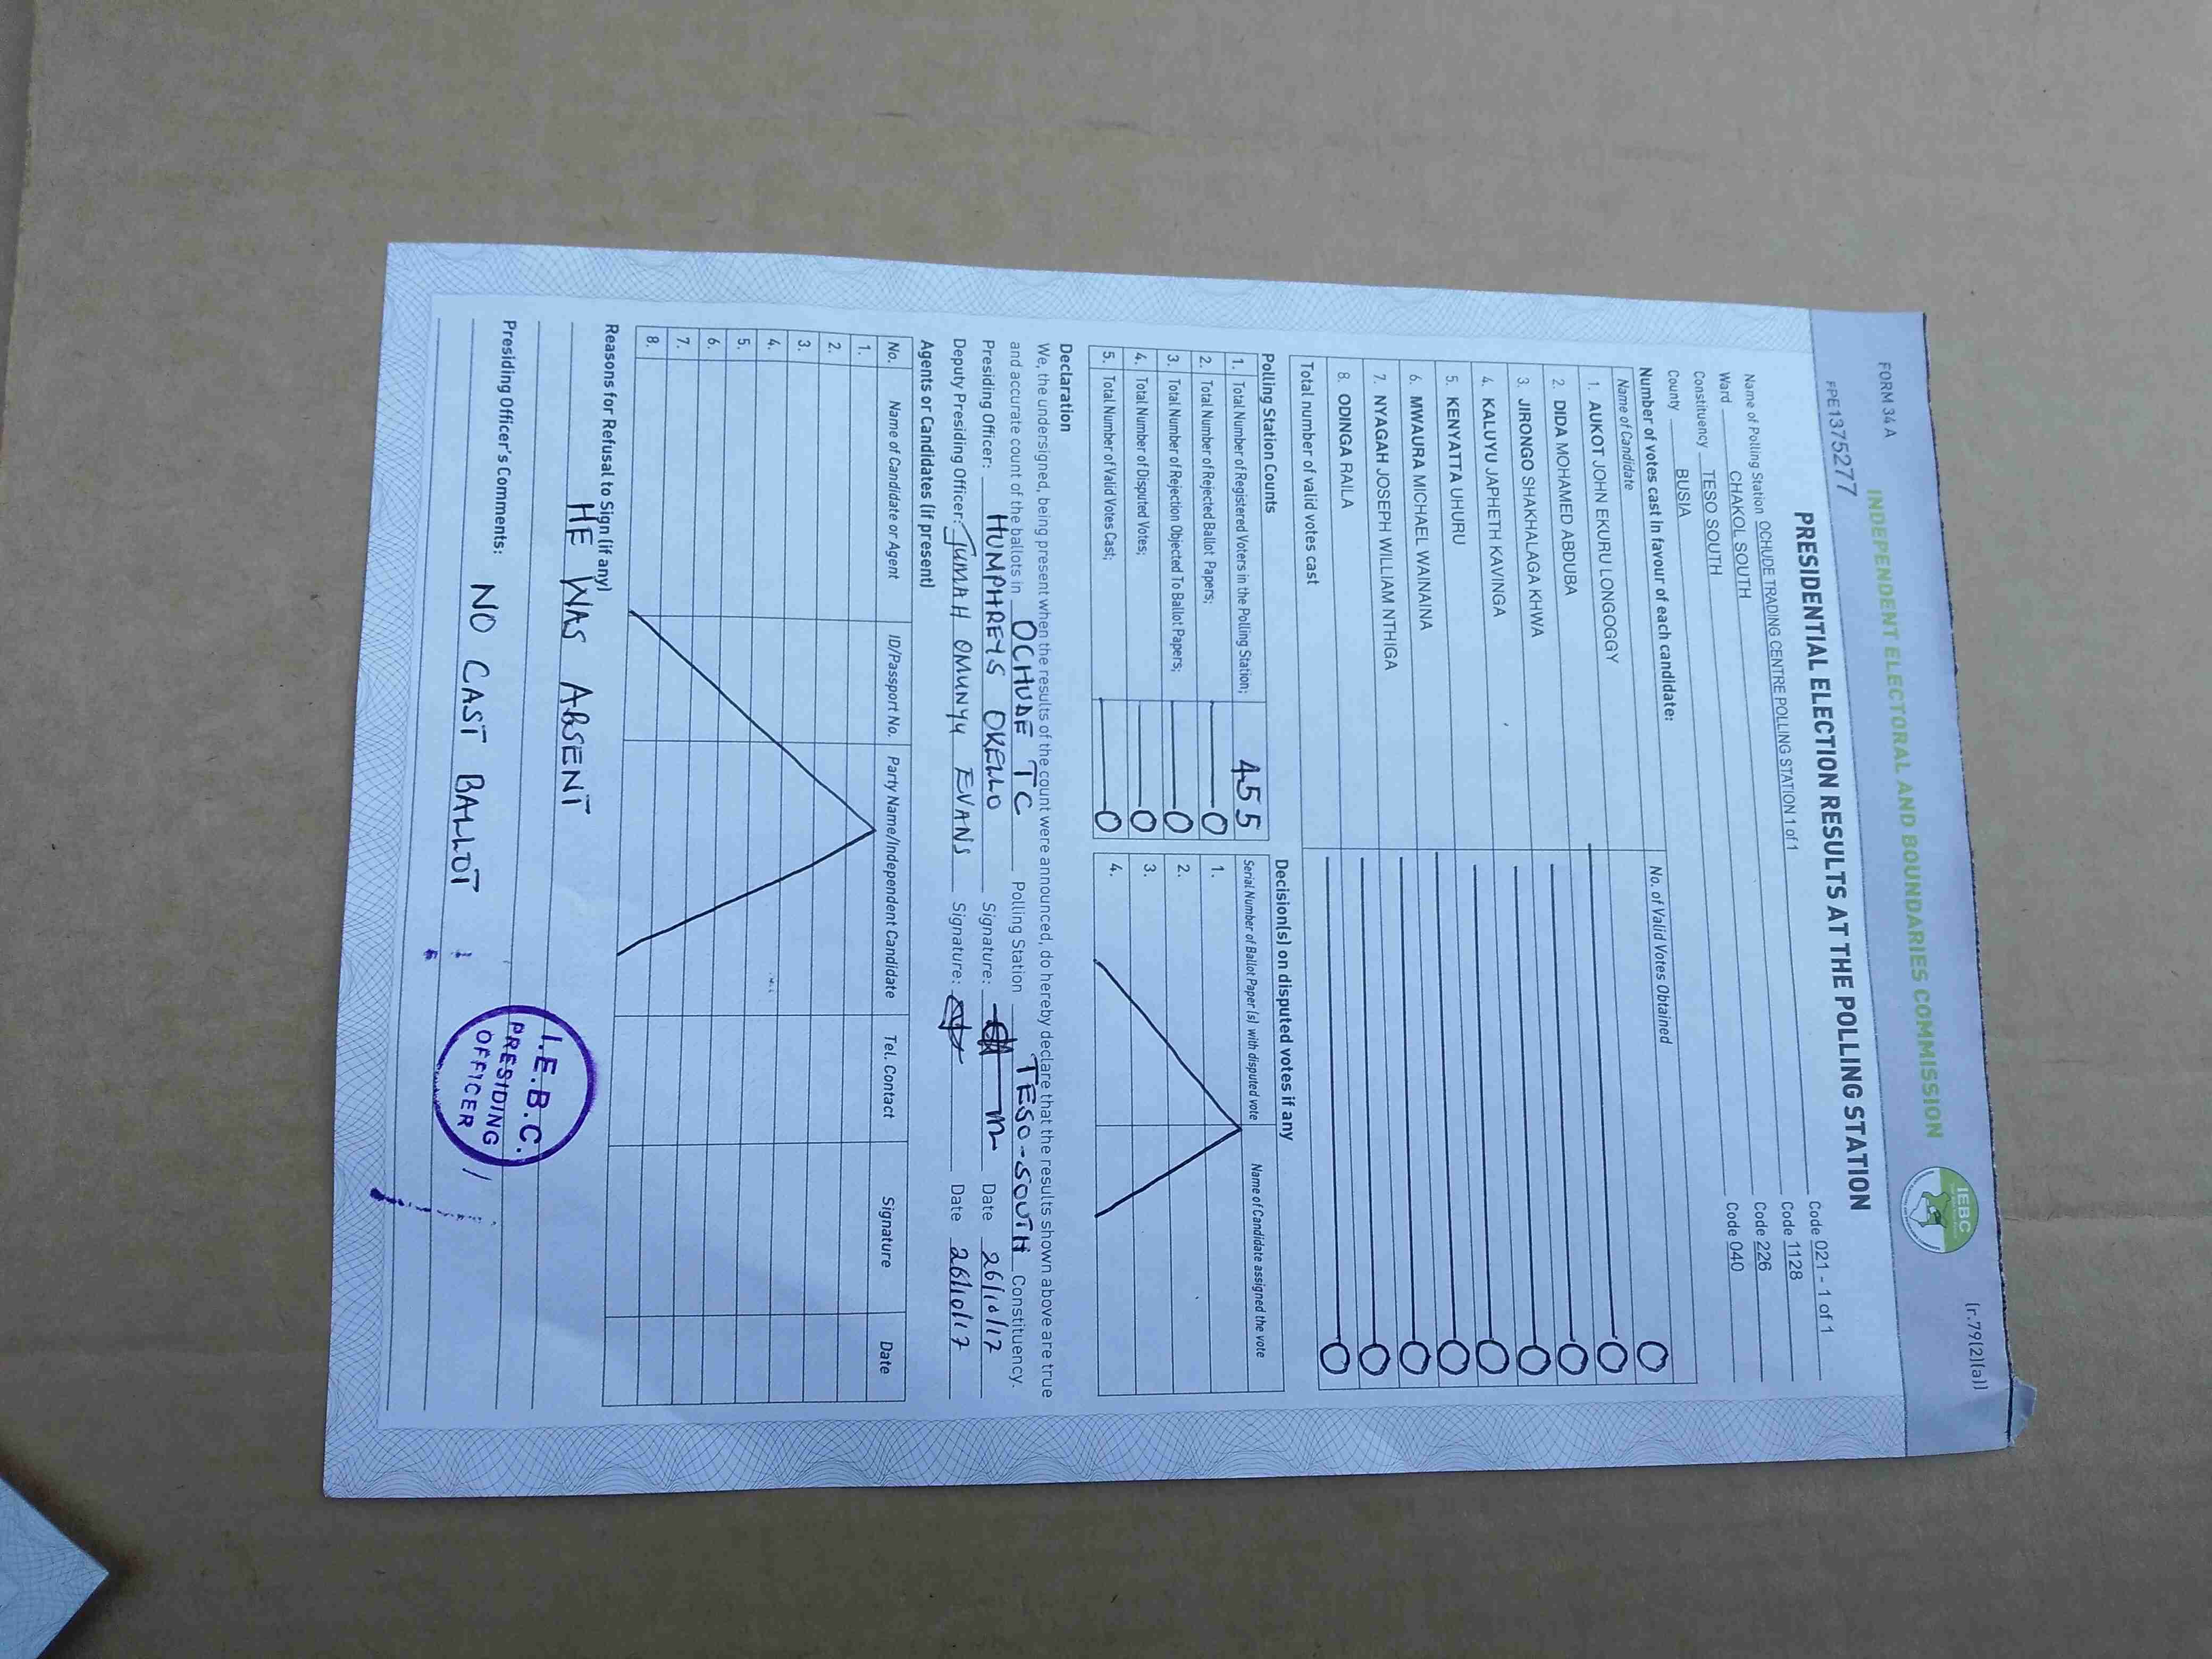 FORM 34 A
(r.79(2)(a))
INDEPENDENT ELECTORAL AND BOUNDARIES COMMISSION
IEBC
PPE1375277
PRESIDENTIAL ELECTION RESULTS AT THE POLLING STATION
Name of Polling Station OCHUDE TRADING CENTRE POLLING STATION 1 of 1 Code 021 - 1 of 1
Ward CHAKOL SOUTH Code 1128
Constituency TESO SOUTH Code 226
County BUSIA Code 040
Number of votes cast in favour of each candidate:
Name of Candidate No. of Valid Votes Obtained O
1. AUKOT JOHN EKURU LONGOGGY O
2. DIDA MOHAMED ABDUBA O
3. JIRONGO SHAKHALAGA KHWA O
4. KALUYU JAPHETH KAVINGA O
5. KENYATTA UHURU O
6. MWAURA MICHAEL WAINAINA O
7. NYAGAH JOSEPH WILLIAM NTHIGA O
8. ODINGA RAILA O
Total number of valid votes cast
Polling Station Counts
1. Total Number of Registered Voters in the Polling Station; 455
2. Total Number of Rejected Ballot Papers; O
3. Total Number of Rejection Objected To Ballot Papers; O
4. Total Number of Disputed Votes; O
5. Total Number of Valid Votes Cast; O
Decision(s) on disputed votes if any
Serial Number of Ballot Paper (s) with disputed vote Name of Candidate assigned the vote
1.
2.
3.
4.
Declaration
We, the undersigned, being present when the results of the count were announced, do hereby declare that the results shown above are true
and accurate count of the ballots in OCHUDE TC Polling Station TESO-SOUTH Constituency.
Presiding Officer: HUMPHREYS OKELLO Signature: Date 26/10/17
Deputy Presiding Officer: JUMAH OMUNYU EVANS Signature: Date 26/10/17
Agents or Candidates (if present)
No. Name of Candidate or Agent ID/Passport No. Party Name/Independent Candidate Tel. Contact Signature Date
1.
2.
3.
4.
5.
6.
7.
8.
Reasons for Refusal to Sign (if any)
HE WAS ABSENT
Presiding Officer's Comments: NO CAST BALLOT
I.E.B.C.
PRESIDING
OFFICER